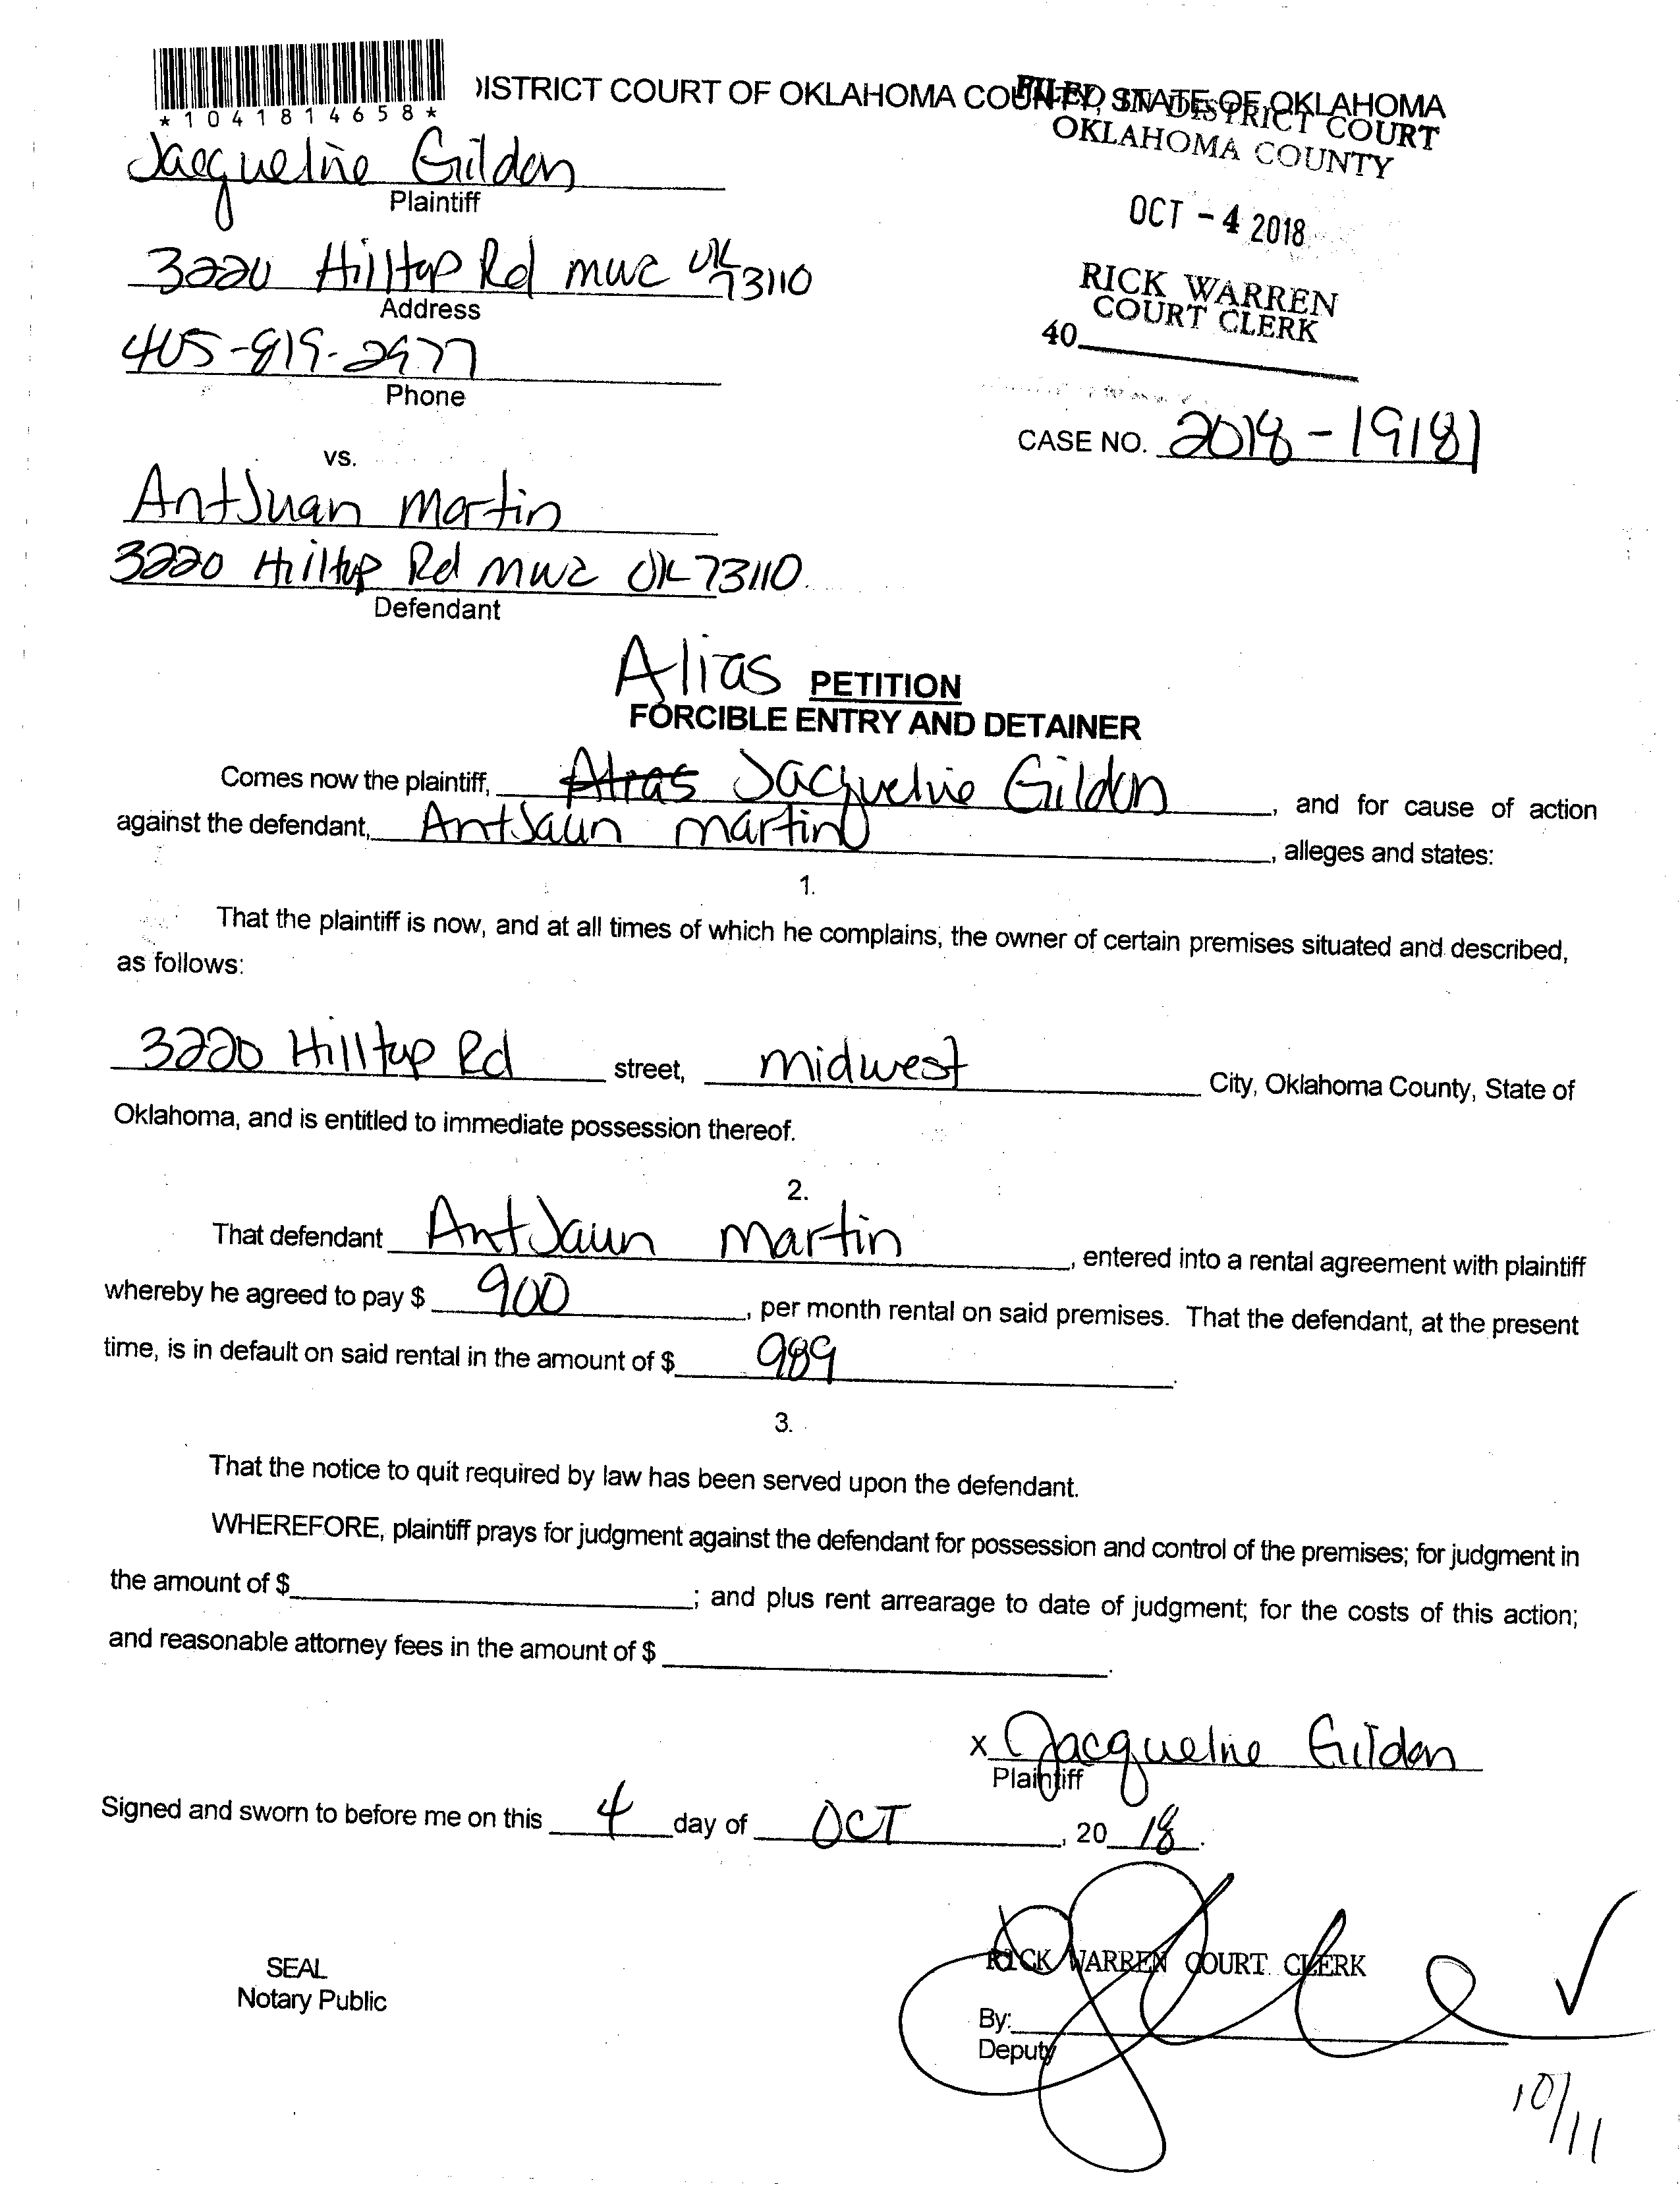 *1041814658*
DISTRICT COURT OF OKLAHOMA COUNTY, STATE OF OKLAHOMA
FILED IN DISTRICT COURT
OKLAHOMA COUNTY
OCT - 4 2018
RICK WARREN
COURT CLERK
40
Jacqueline Gildon
Plaintiff
3220 Hilltop Rd mwc OK 73110
Address
405-819-2977
Phone
CASE NO. 2018-19181
vs.
AntJuan Martin
3220 Hilltop Rd mwc OK 73110
Defendant
Alias PETITION
FORCIBLE ENTRY AND DETAINER
Comes now the plaintiff, Alias Jacqueline Gildon, and for cause of action
against the defendant, AntJaun martin, alleges and states:
1.
That the plaintiff is now, and at all times of which he complains, the owner of certain premises situated and described,
as follows:
3220 Hilltop Rd street, midwest City, Oklahoma County, State of
Oklahoma, and is entitled to immediate possession thereof.
2.
That defendant AntJaun martin, entered into a rental agreement with plaintiff
whereby he agreed to pay $ 900, per month rental on said premises. That the defendant, at the present
time, is in default on said rental in the amount of $ 989.
3.
That the notice to quit required by law has been served upon the defendant.
WHEREFORE, plaintiff prays for judgment against the defendant for possession and control of the premises; for judgment in
the amount of $; and plus rent arrearage to date of judgment; for the costs of this action;
and reasonable attorney fees in the amount of $.
x Jacqueline Gildon
Plaintiff
Signed and sworn to before me on this 4 day of OCT, 2018.
RICK WARREN COURT CLERK
SEAL
Notary Public
By:
Deputy
10/11